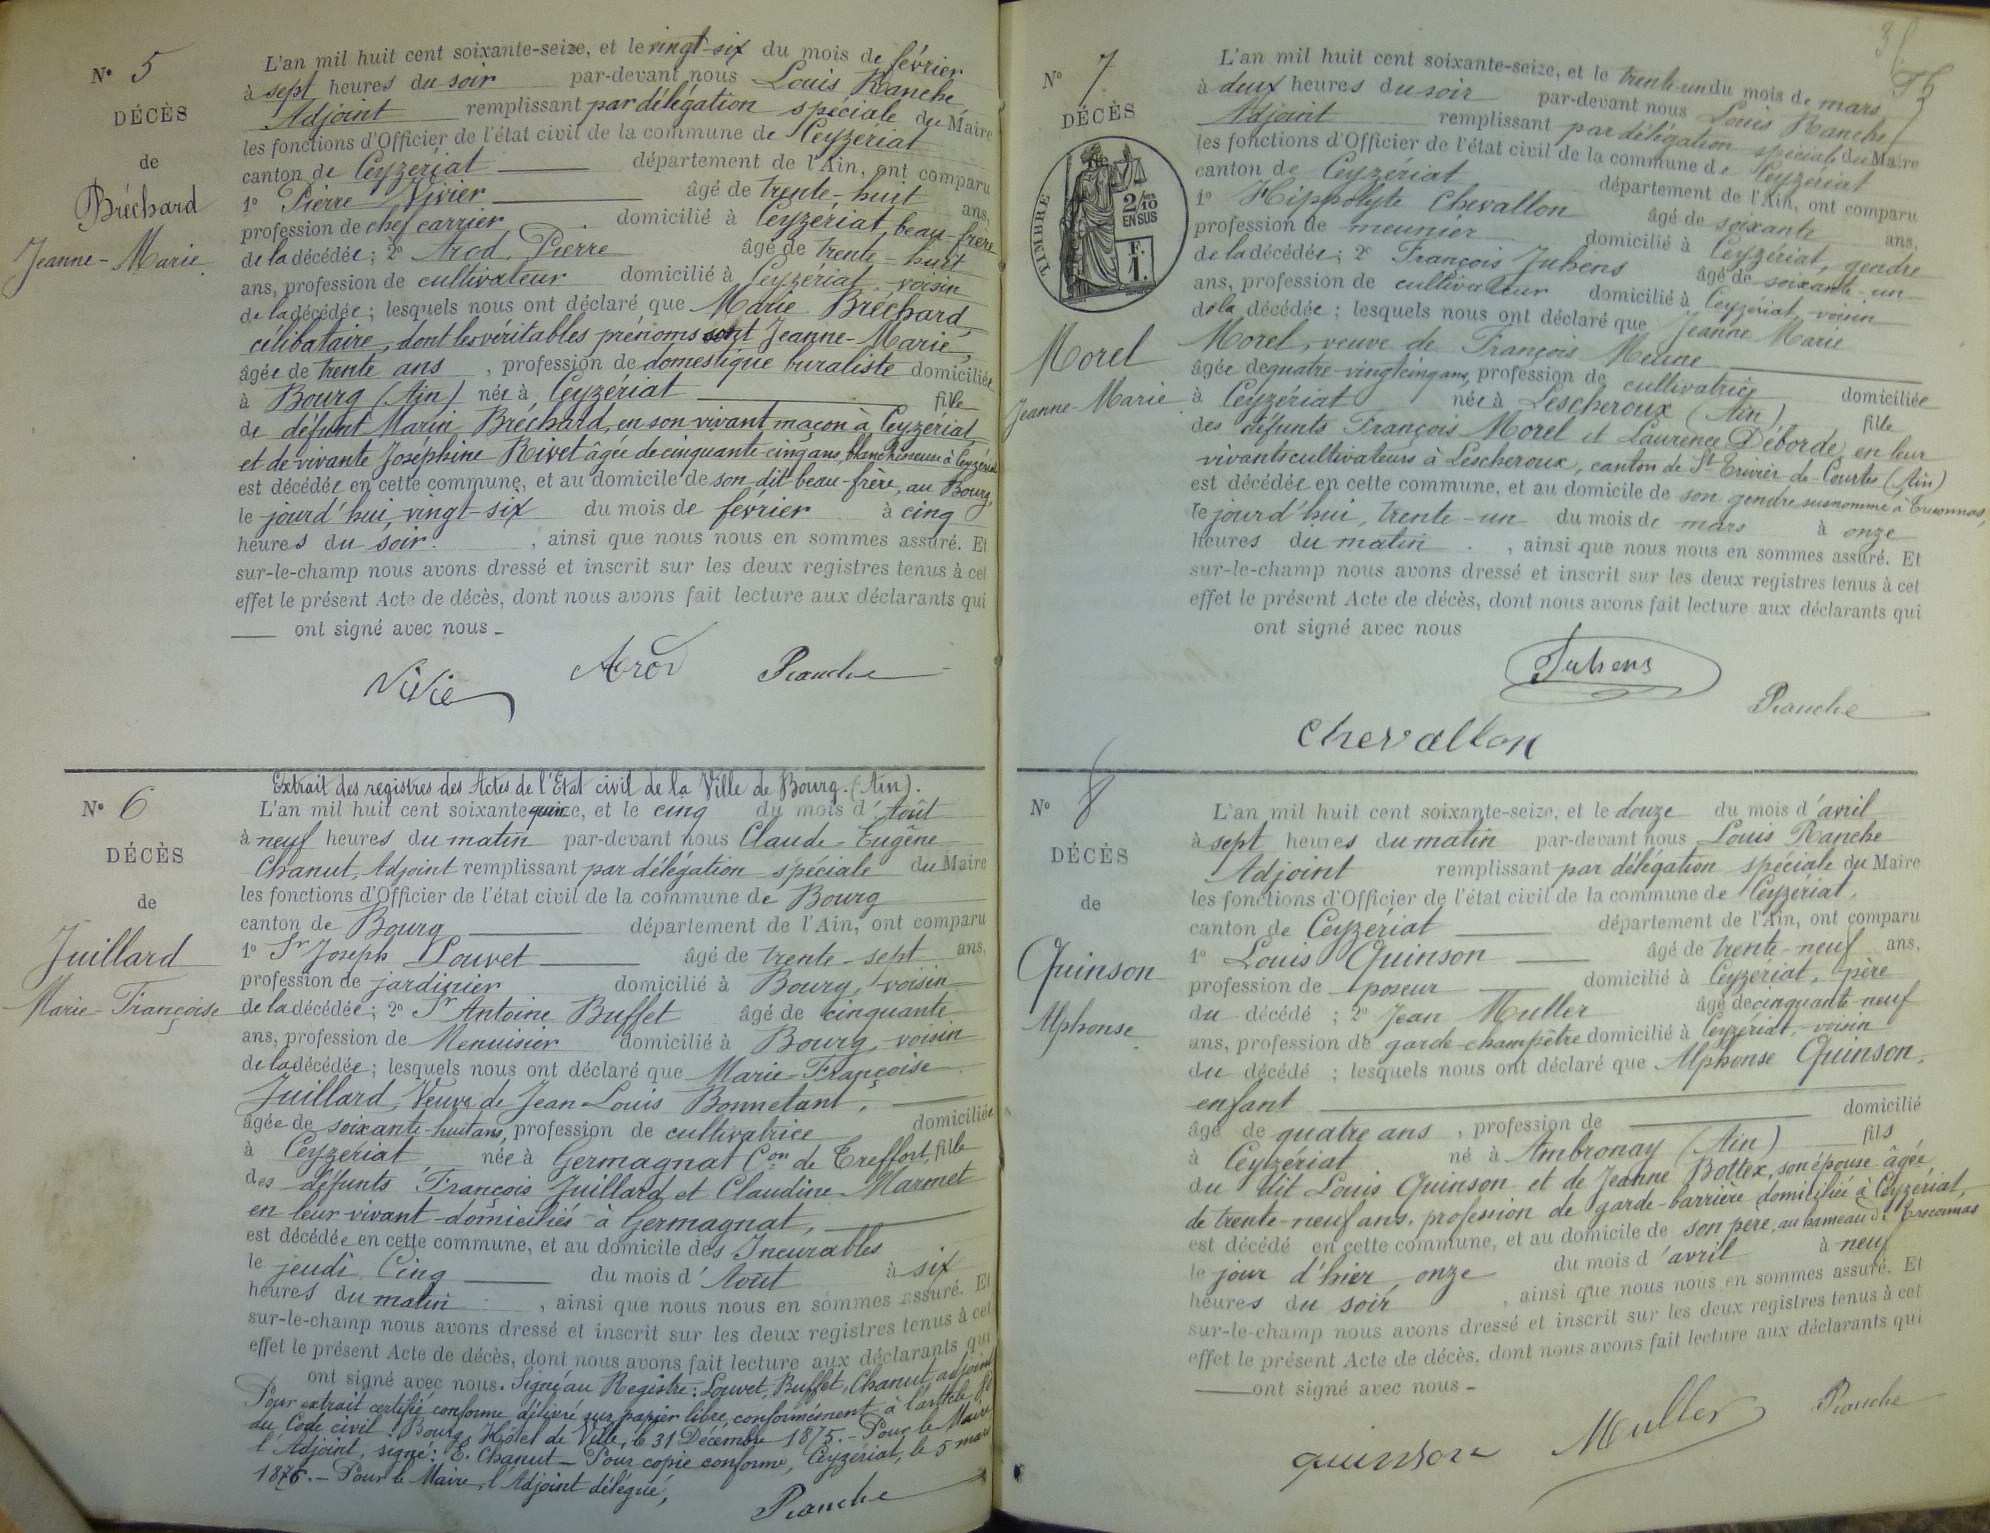 N° 5
DÉCÈS
de
Bréchard
Jeanne-Marie
L'an mil huit cent soixante-seize, et le vingt-six du mois de février
à sept heures du soir par-devant nous Louis Ranche
Adjoint remplissant par délégation spéciale du Maire
les fonctions d'Officier de l'état civil de la commune de Ceyzériat
canton de Ceyzériat département de l'Ain, ont comparu
1° Pierre Vivier âgé de trente-huit ans,
profession de chef carrier domicilié à Ceyzériat, beau-frère
de la décédée; 2° Arod, Pierre âgé de trente-huit
ans, profession de cultivateur domicilié à Ceyzériat, voisin
de la décédée; lesquels nous ont déclaré que Marie Bréchard,
célibataire, dont les véritables prénoms sont Jeanne-Marie,
âgée de trente ans, profession de domestique buraliste domiciliée
à Bourg (Ain) née à Ceyzériat fille
de défunt Marin Bréchard, en son vivant maçon à Ceyzériat,
et de vivante Joséphine Rivet âgée de cinquante-cinq ans, blanchisseuse à Ceyzériat
est décédée en cette commune, et au domicile de son dit beau-frère, au Bourg,
le jourd'hui, vingt-six du mois de février à cinq
heures du soir, ainsi que nous nous en sommes assuré. Et
sur-le-champ nous avons dressé et inscrit sur les deux registres tenus à cet
effet le présent Acte de décès, dont nous avons fait lecture aux déclarants qui
ont signé avec nous.
Vivie Arod Ranche
N° 6
DÉCÈS
de
Juillard
Marie-Françoise
Extrait des registres des Actes de l'Etat civil de la Ville de Bourg (Ain).
L'an mil huit cent soixante quinze, et le cinq du mois d'Août
à neuf heures du matin par-devant nous Claude-Eugène
Chanut, Adjoint remplissant par délégation spéciale du Maire
les fonctions d'Officier de l'état civil de la commune de Bourg
canton de Bourg département de l'Ain, ont comparu
1° Sr Joseph Louvet âgé de trente-sept ans,
profession de jardinier domicilié à Bourg, voisin
de la décédée; 2° Sr Antoine Buffet âgé de cinquante
ans, profession de Menuisier domicilié à Bourg, voisin
de la décédée; lesquels nous ont déclaré que Marie-Françoise
Juillard, Veuve de Jean-Louis Bonnetant,
âgée de soixante-huit ans, profession de cultivatrice domiciliée
à Ceyzériat née à Germagnat Con de Treffort, fille
des défunts François Juillard et Claudine Marmet
en leur vivant domiciliés à Germagnat,
est décédée en cette commune, et au domicile des Incurables
le jeudi Cinq du mois d'Août à six
heures du matin, ainsi que nous nous en sommes assuré. Et
sur-le-champ nous avons dressé et inscrit sur les deux registres tenus à cet
effet le présent Acte de décès, dont nous avons fait lecture aux déclarants qui
ont signé avec nous. Signé au Registre: Louvet, Buffet, Chanut adjoint
Pour extrait certifié conforme délivré sur papier libre, conformément à l'article 80
du Code civil. Bourg, Hôtel de Ville, le 31 Décembre 1875. - Pour le Maire
l'Adjoint, signé: E. Chanut - Pour copie conforme, Ceyzériat, le 5 mars
1876. - Pour le Maire, l'Adjoint délégué,
Ranche
N° 7
DÉCÈS
TIMBRE
2/10
EN SUS
F. 1.
Morel
Jeanne-Marie
L'an mil huit cent soixante-seize, et le trente-un du mois de mars
à deux heures du soir par-devant nous Louis Ranche
Adjoint remplissant par délégation spéciale du Maire
les fonctions d'Officier de l'état civil de la commune de Ceyzériat
canton de Ceyzériat département de l'Ain, ont comparu
1° Hippolyte Chevallon âgé de soixante ans,
profession de meunier domicilié à Ceyzériat, gendre
de la décédée; 2° François Juhens âgé de soixante-un
ans, profession de cultivateur domicilié à Ceyzériat, voisin
de la décédée; lesquels nous ont déclaré que Jeanne Marie
Morel, veuve de François
âgée de quatre-vingt cinq ans, profession de cultivatrice domiciliée
à Ceyzériat née à Lescheroux (Ain), fille
des défunts François Morel et Laurence Déborde, en leur
vivants cultivateurs à Lescheroux, canton de St Trivier-de-Courtes (Ain)
est décédée en cette commune, et au domicile de son gendre susnommé à
le jourd'hui, trente-un du mois de mars à onze
heures du matin, ainsi que nous nous en sommes assuré. Et
sur-le-champ nous avons dressé et inscrit sur les deux registres tenus à cet
effet le présent Acte de décès, dont nous avons fait lecture aux déclarants qui
ont signé avec nous
Juhens
Ranche
Chevallon
N° 8
DÉCÈS
de
Quinson
Alphonse
L'an mil huit cent soixante-seize, et le douze du mois d'avril
à sept heures du matin par-devant nous Louis Ranche
Adjoint remplissant par délégation spéciale du Maire
les fonctions d'Officier de l'état civil de la commune de Ceyzériat,
canton de Ceyzériat département de l'Ain, ont comparu
1° Louis Quinson âgé de trente-neuf ans,
profession de poseur domicilié à Ceyzériat, père
du décédé; 2° Jean Muller âgé de cinquante-neuf
ans, profession de garde-champêtre domicilié à Ceyzériat, voisin
du décédé; lesquels nous ont déclaré que Alphonse Quinson,
enfant
âgé de quatre ans, profession de domicilié
à Ceyzériat né à Ambronay (Ain) fils
du dit Louis Quinson et de Jeanne Bottex, son épouse âgée
de trente-neuf ans, profession de garde-barrière domiciliée à Ceyzériat,
est décédé en cette commune, et au domicile de son père, au hameau de
le jour d'hier, onze du mois d'avril à neuf
heures du soir, ainsi que nous nous en sommes assuré. Et
sur-le-champ nous avons dressé et inscrit sur les deux registres tenus à cet
effet le présent Acte de décès, dont nous avons fait lecture aux déclarants qui
ont signé avec nous -
quinson Muller Ranche